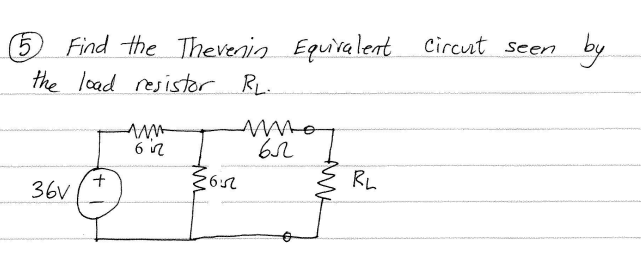 ⑤ Find the Thevenin Equivalent Circuit seen by
the load resistor RL.
6Ω 6Ω
36V + - 6Ω RL